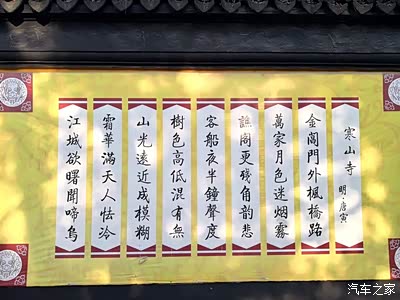 寒山寺
明·唐寅
金閶門外楓橋路
萬家月色迷烟霧
譙閣更殘角韵悲
客船夜半鐘聲度
樹色高低混有無
山光遠近成模糊
霜華滿天人怯冷
江城欲曙聞啼烏
汽车之家